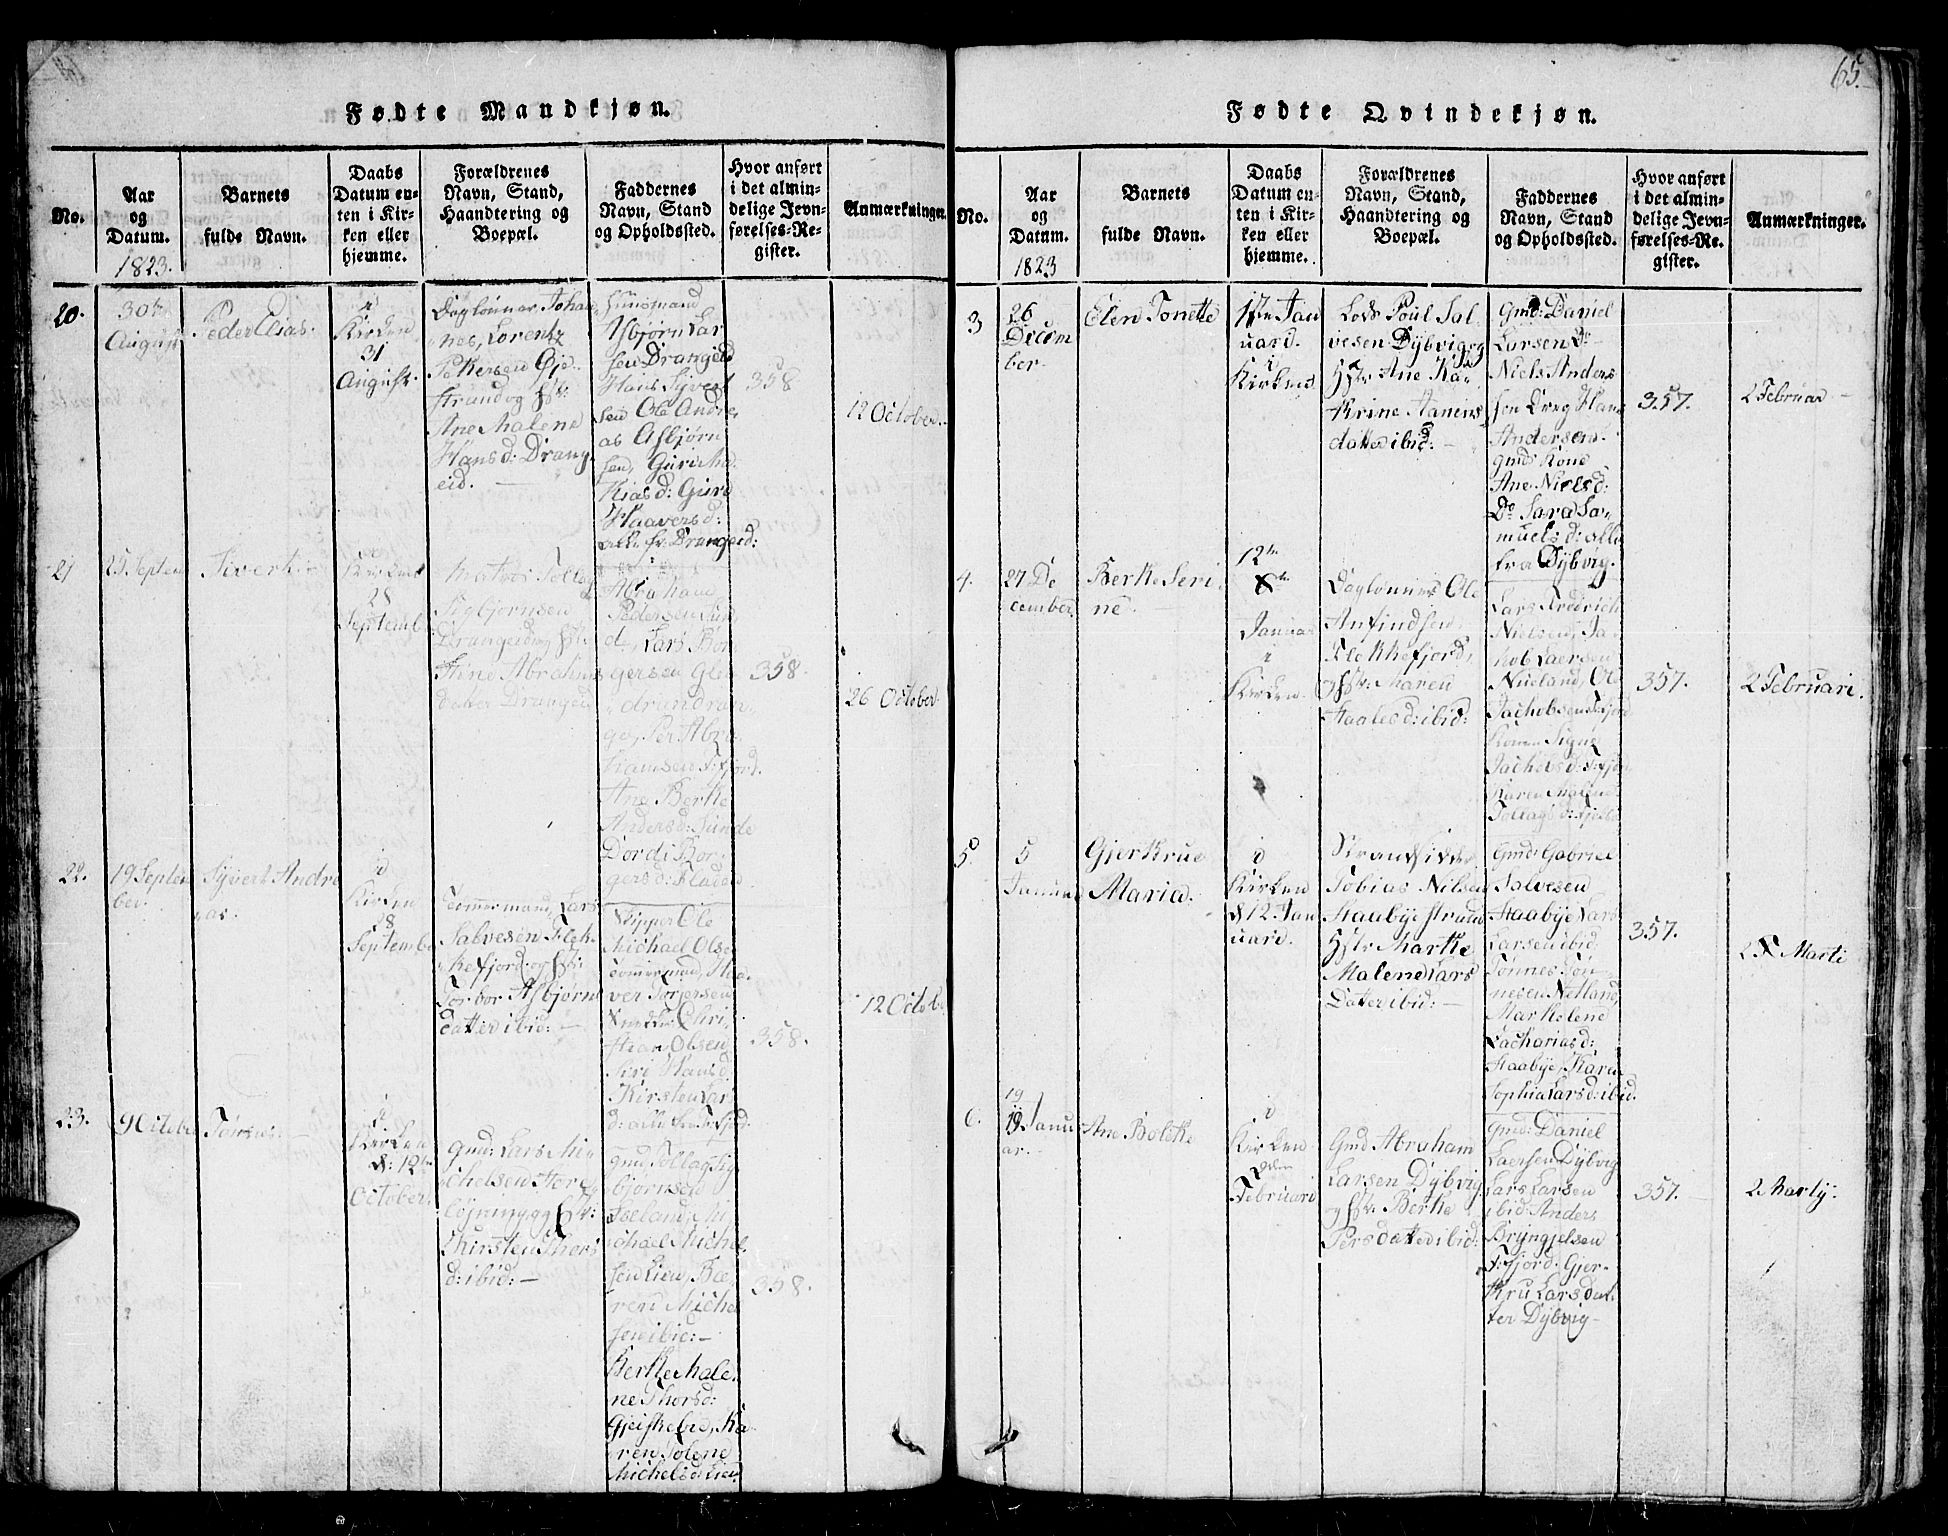 65.
Fødte Mandkjøn.
No.
Aar
og
Datum.
1823.
Barnets
fulde Navn.
Daabs
Datum en-
ten i Kir-
ken eller
hjemme.
Forældrenes
Navn, Stand,
Haandtering og
Boepæl.
Faddernes
Navn, Stand
og Opholdssted.
Hvor anført
i det almin-
delige Jevn-
førelses-Re-
gister.
Anmærkninger.
20.
30te
August
Peder Elias.
i
Kirken
31
August.
Daglønner Johan
nes Lorentz
Pettersen Øje
strand og Hstr:
Ane Malene
Hans d: Drang
eid.
Huusmand
Asbjørn Lar
sen Drangeid
Hans Syvert
sen Ole Andre
as Asbjørn
sen, Guri Ma
thias d: Guro
Haavers d:
alle fr. Drangeid:
358
12 October.
21
25 Septem
Sivert
Kirken
28
Septemb
Matros Tollag
Sigbjørnsen
Drangeid og Hstr:
Stine Abrahams
datter Drangeid
Abraham
Pedersen Sun
d, Lars Bør
gersen
Per Abra
hamsen F:fjord.
Ane Berthe
Anders d: Sunde
Dordi Bør
gers d: Fladen
358.
26 October.
22.
19 Septem
ber.
Syvert Andre
as.
i
Kirken
28
September
Tømmermand Lars
Salvesen Flek
kefjord og Hstr:
Torbor Asbjørns
datter ibid:
Skipper Ole
Michael Olsen
Tømermnd,
ver Torjersen
Snedker Chri
stian Olsen
Siri Hans d
Kirsten Lar
d: alle fra F:fjd.
358.
12 Octobr
23.
9 Octobe
Tønnes.
i
Kirken
d: 12te
October.
Gmd: Lars Mi
chelsen
løjning og Hstr:
Kirsten Thors
d: ibid:
Gmd Tollag Sig
bjørnsen
Iseland, Mi
chael Michel
sen Lien, Bæ
rend Michel
sen ibid:
Berthe Male
ne Thors d:
Ka
ren Tolene
Michels d Lien
358.
Fødte Qvindekjøn.
No.
Aar
og
Datum.
1823
Barnets
fulde Navn.
Daabs
Datum en-
ten i Kir-
ken eller
hjemme.
Forældrenes
Navn, Stand,
Haandtering og
Boepæl.
Faddernes
Navn, Stand
og Opholdssted.
Hvor anført
i det almin-
delige Jevn-
førelses-Re-
gister.
Anmærkninger.
3
26
Decem
ber.
Elen Tonette
1ste Jan
uard.
i
Kirken
Lods Poul Sal
vesen Dybvig og
Hstr Ane Ka
trine Aanens
datter ibid:
Gmd: Daniel
Larsen Do
Niels Anders
sen Dreg Hans
Andersen
gmds Kone
Ane Niels d:
Do Sara Sa
muels d: alle
fra Dybvig.
357.
2 Februar
4.
27 De
cember
Berte Seri
ne.
12te
Januar
i
Kirken.
Daglønner Ole
Anfindsen
Flekkefjord,
og Hstr: Maren
Staales d: ibid:
Lars Fredrich
Nielsen, Ja
kob Laersen
Nueland, Ole
Jachobsen F:fjord
Konen Signe
Jachobs d: F:fjor
Karen Malene
Tollags d:
357.
2 Februari.
5.
5
Januar
Gjertrue
Maria.
i
Kirken
d 12. Jan
uari.
Strandsidder
Tobias Nilsen
Staabye strand
Hstr Marthe
Malene Lars
Datter ibid:
Gmd: Gabriel
Salvesen
Staabye Lars
Larsen ibid
Tønnes Tøn
nesen Netland
Marthe Lene
Zacharias d:
Staabye, Karen
Sophia Lars d: ibid.
357.
2 Marti
6.
19
19 Janu
ar.
Ane Bolette
i
Kirken
2den
Februari
Gmd Abraham
Larsen Dybvig
og Hstr. Berthe
Pers datter ibid:
Gmd: Daniel
Laersen Dybvig
Lars Larsen
ibid: Anders
Bryngjelsen
F:fjord. Gjer
tru Lars dat
ter Dybvig
357.
2 Martÿ.